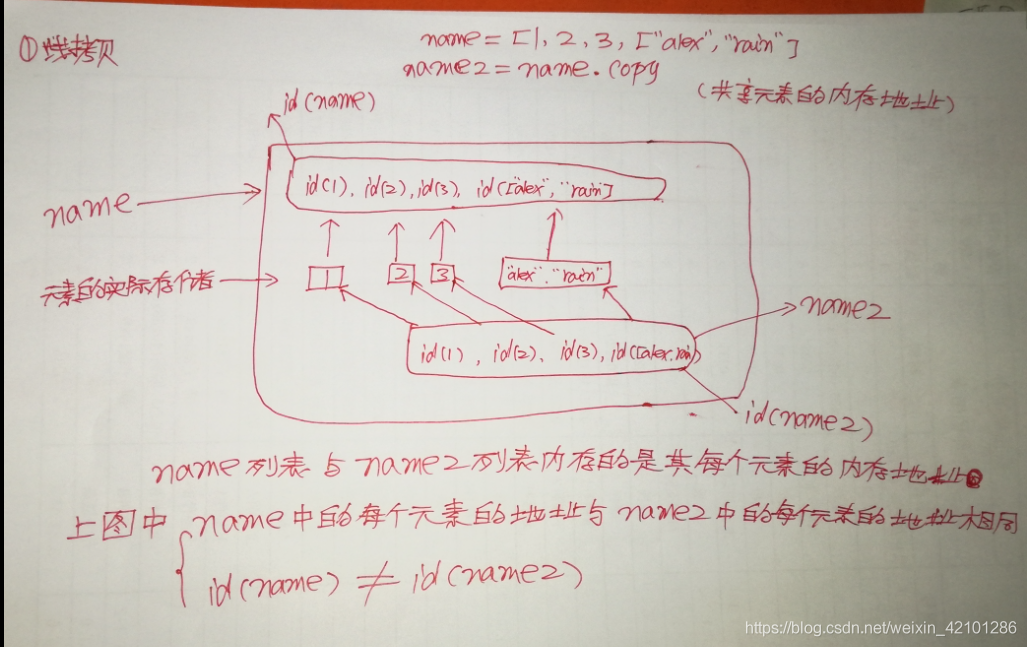 ①浅拷贝
name = [1, 2, 3, ["alex", "rain"]
name2 = name.copy
(共享元素的内存地址)
id(name)
id(1), id(2), id(3), id(["alex", "rain"]
name
元素的实际存储者
1
2
3
"alex"."rain"
name2
id(1), id(2)、id(3), id([alex.rain)
id(name2)
name列表与name2列表内存的是其每个元素的内存地址
上图中
name中的每个元素的地址与name2中的每个元素的地址相同
id(name) ≠ id(name2)
https://blog.csdn.net/weixin_42101286